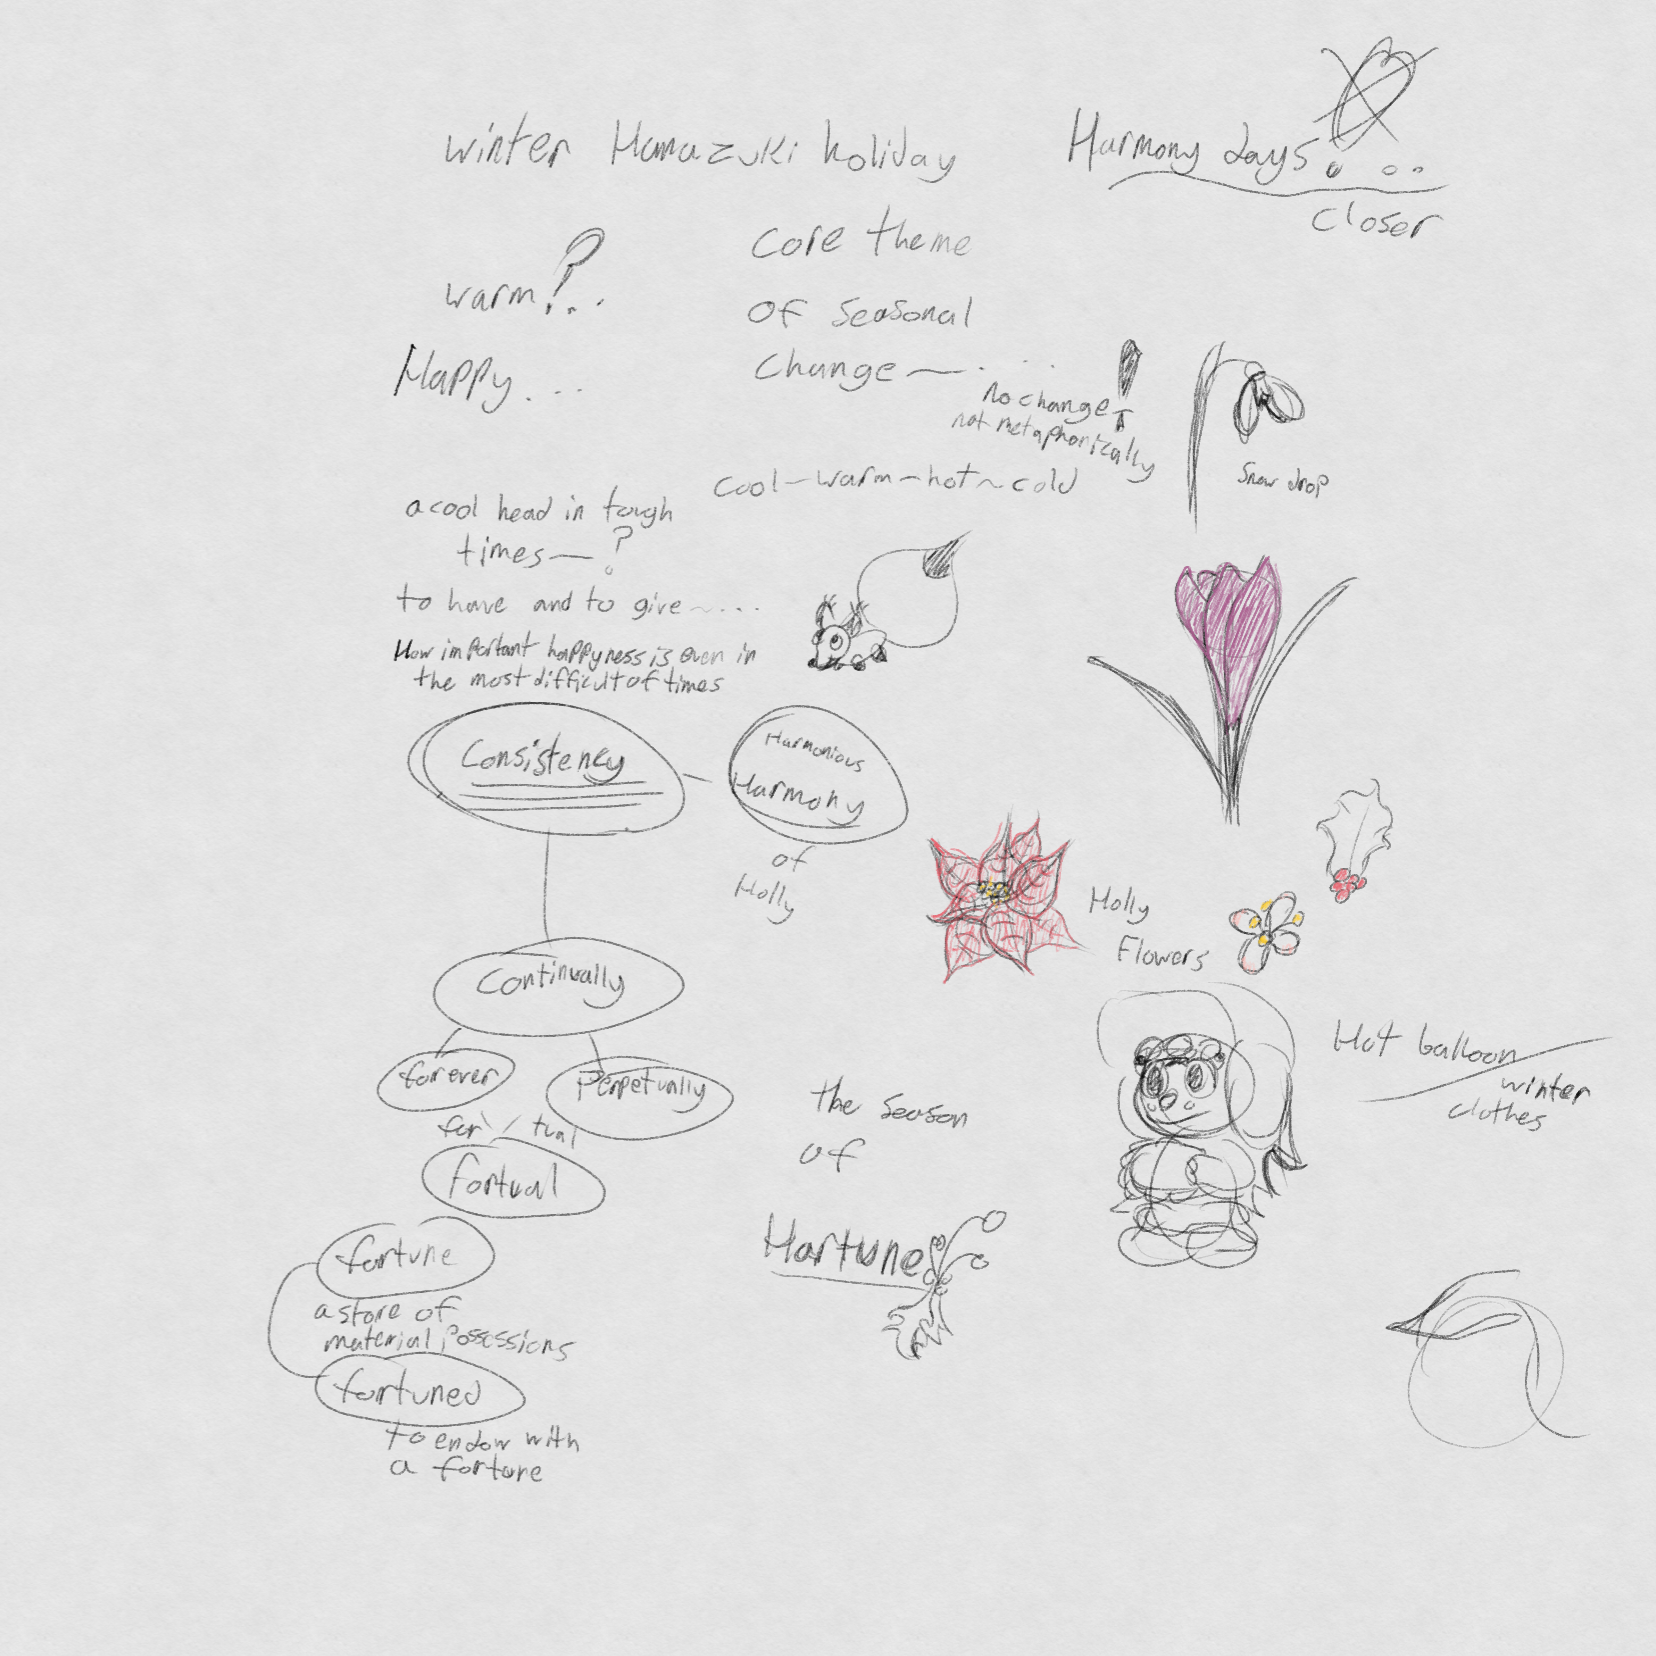 winter Hamazuki holiday
Harmony days! ...
closer
warm?..
Happy...
core theme
of seasonal
change — ....
no change!
not metaphorically
cool-warm-hot~cold
Snow drop
a cool head in tough
times—?
to have and to give~....
How important happyness is even in
the most difficult of times
Consistency
Harmonious
Harmony
of
Holly
Holly
Flowers
Continually
forever
Perpetually
for / tual
fortual
fortune
a store of
material possessions
fortuned
to endow with
a fortune
the season
of
Hartune
Hot balloon
winter
clothes